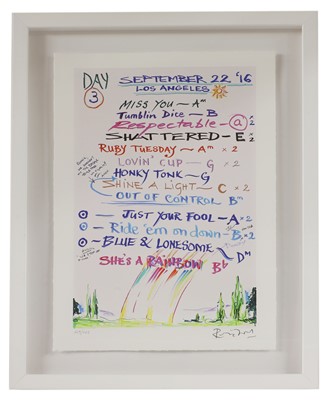 DAY
3
SEPTEMBER 22 '16
LOS ANGELES
MISS YOU - Am
Tumblin Dice - B
Respectable - a x2
SHATTERED - E x2
RUBY TUESDAY - Am x 2
LOVIN' CUP - G x 2
HONKY TONK - G
SHINE A LIGHT - C x 2
OUT OF CONTROL Bm
JUST YOUR FOOL - A x2
Ride 'em on down - B x 2
BLUE & LONESOME - Dm
SHE'S A RAINBOW Bb